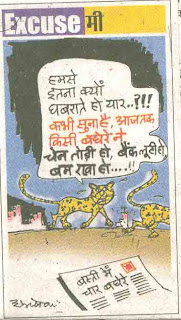 Excuse मी
हमसे
इतना क्यों
घबराते हो यार..?!!
कभी सुना है, आजतक
किसी बघेरे ने
चेन तोड़ी हो, बैंक लूटी हो
बम रखा हो....!!
बस्ती में
चार बघेरे